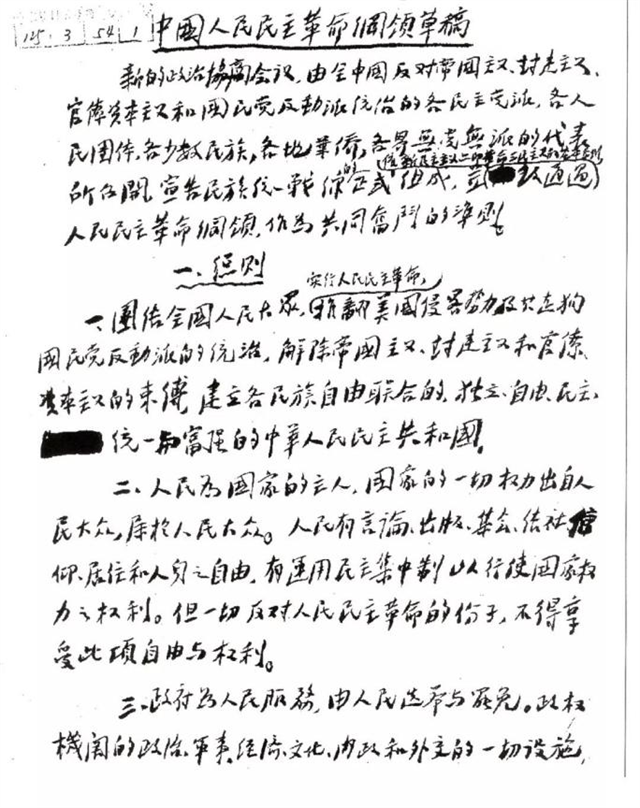 125 3 54 1
中國人民民主革命綱領草稿
新的政治協商会议,由全中國反对帝國主义、封建主义、
官僚资本主义和國民党反動派统治的各民主党派、各人
民團体、各少数民族、各地華僑、各界無党無派的代表
所召開,宣告民族统一戰線的正式組成,並 通過
人民民主革命綱領,作為共同奮鬥的準則。
一、總則
实行人民民主革命,
一、團结全國人民大眾, 推翻美國侵畧势力及其走狗
國民党反動派的统治,解除帝國主义、封建主义和官僚
资本主义的束缚,建立各民族自由联合的、独立、自由、民主、
统一与富强的中華人民民主共和國。
二、人民為國家的主人,國家的一切权力出自人
民大众,属於人民大众。人民有言論、出版、集会、结社、信
仰、居住和人身之自由,有運用民主集中制以行使國家权
力之权利。但一切反对人民民主革命的份子,不得享
受此項自由与权利。
三、政府為人民服務,由人民选举与罢免。政权
機関的政治、軍事、经濟、文化、内政和外交的一切设施,